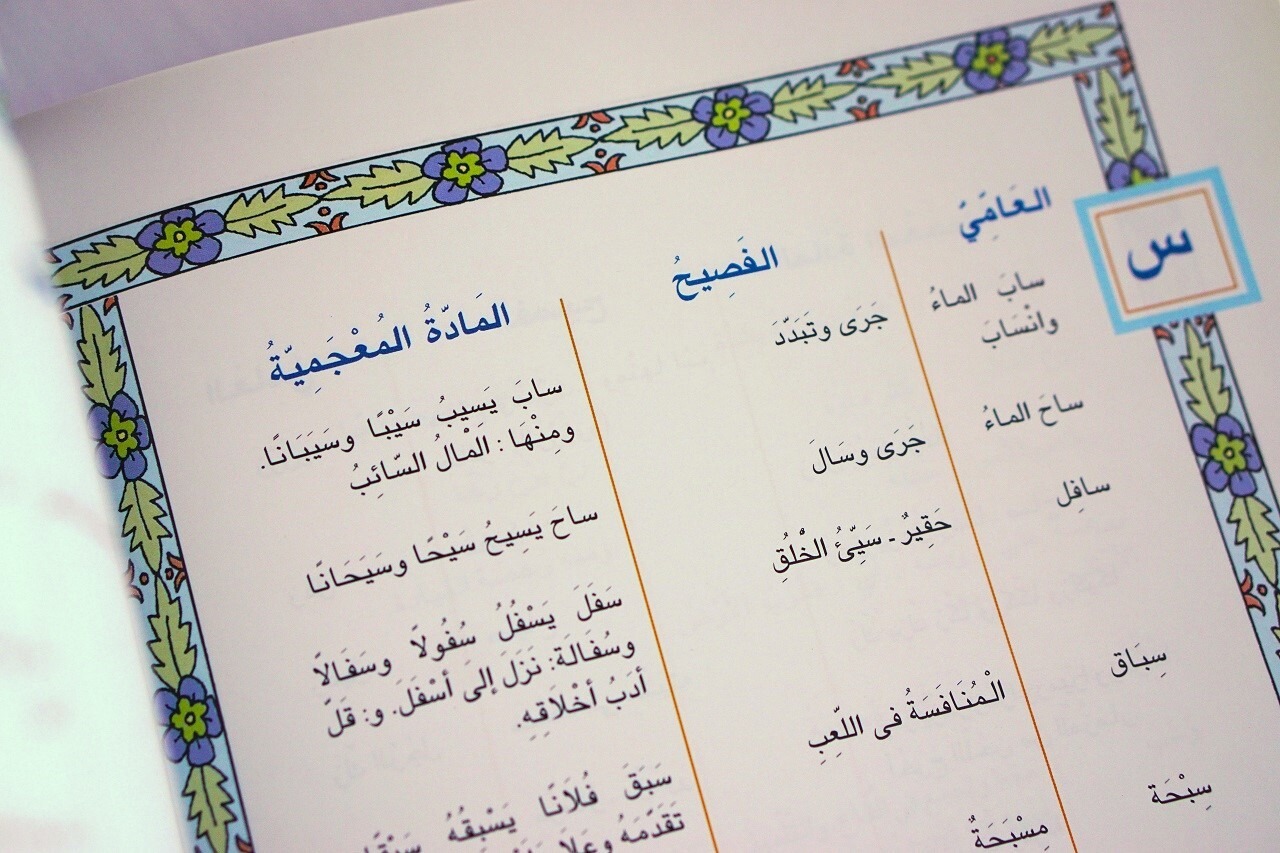 س
العَامِّيّ
الفَصِيحُ
المَادّةُ المُعْجَمِيّةُ
سابَ الماءُ
وانْسَابَ
جَرَى وتَبَدَّدَ
سابَ يَسِيبُ سَيْبًا وسَيَبَانًا.
ومِنْهَا : الْمالُ السّائِبُ
ساحَ الماءُ
جَرَى وسَالَ
ساحَ يَسِيحُ سَيْحًا وسَيَحَانًا
سافِل
حَقِيرٌ - سَيِّئُ الخُلُقِ
سَفَلَ يَسْفُلُ سُفُولاً وسَفَالاً
وسُفَالَة: نَزَلَ إلَى أسْفَلَ. و: قَلَّ
أدَبُ أخْلاَقِهِ.
سِبَاق
الْمُنَافَسَةُ فى اللّعِبِ
سَبَقَ فُلاَنًا يَسْبِقُهُ
تَقَدّمَهُ وعَلاَ
سِبْحَة
مِسْبَحَةٌ